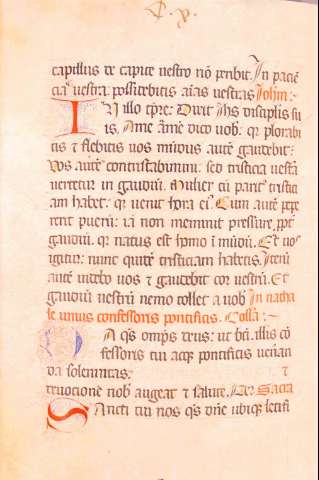 C. v.
capillus de capite vestro nõ peribit. In paciẽ
cia vestra possidebitis aĩas vestras Johẽ:
IN illo tp̃re: Dixit Ihs discipĩlis su
is. Amẽ amẽ dico vob: qr plorabi
tis ⁊ flebitis vos mũdus autẽ gaudebit:
Vos autẽ contristabimini: sed tristicia vestra
vertetur in gaudiũ. Mulier cũ parit tristici
am habet: qr venit hora eĩ. Cum autẽ pepe
rerit puerũ: iã non meminit pressure, ppt
gaudiũ. qr natus est homo ĩ mũdũ. Et vos
igitur: nunc quidẽ tristiciam habetis. Iterũ
autẽ videbo vos ⁊ gaudebit cor vestrũ. Et
gaudiũ vestrũ nemo tollet a vob In nata
le unius confessoris pontificis. Collã:
Da qs omps deus: ut bti. illis cõ
fessoris tui atqz pontificis veneran
da solennitas: ⁊
devocionẽ nob augeat ⁊ salutẽ. Sacra
Sancti tui nos qs dñe ubiqz letifi